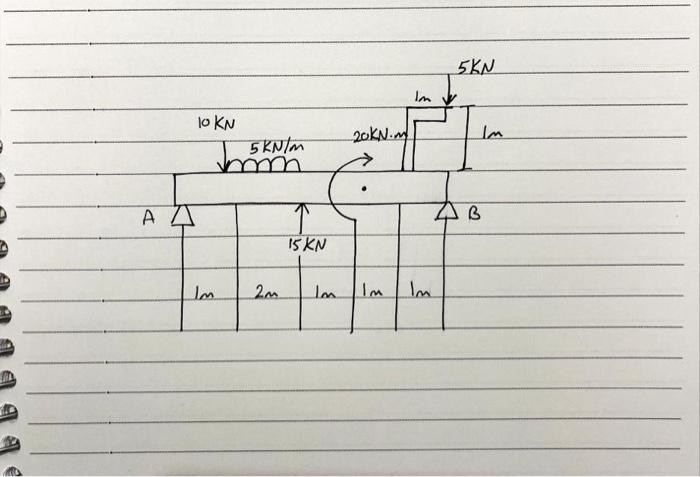 5KN
1m
10 KN
20KN.m
1m
5 KN/m
A
B
15 KN
1m
2m
1m
1m
1m